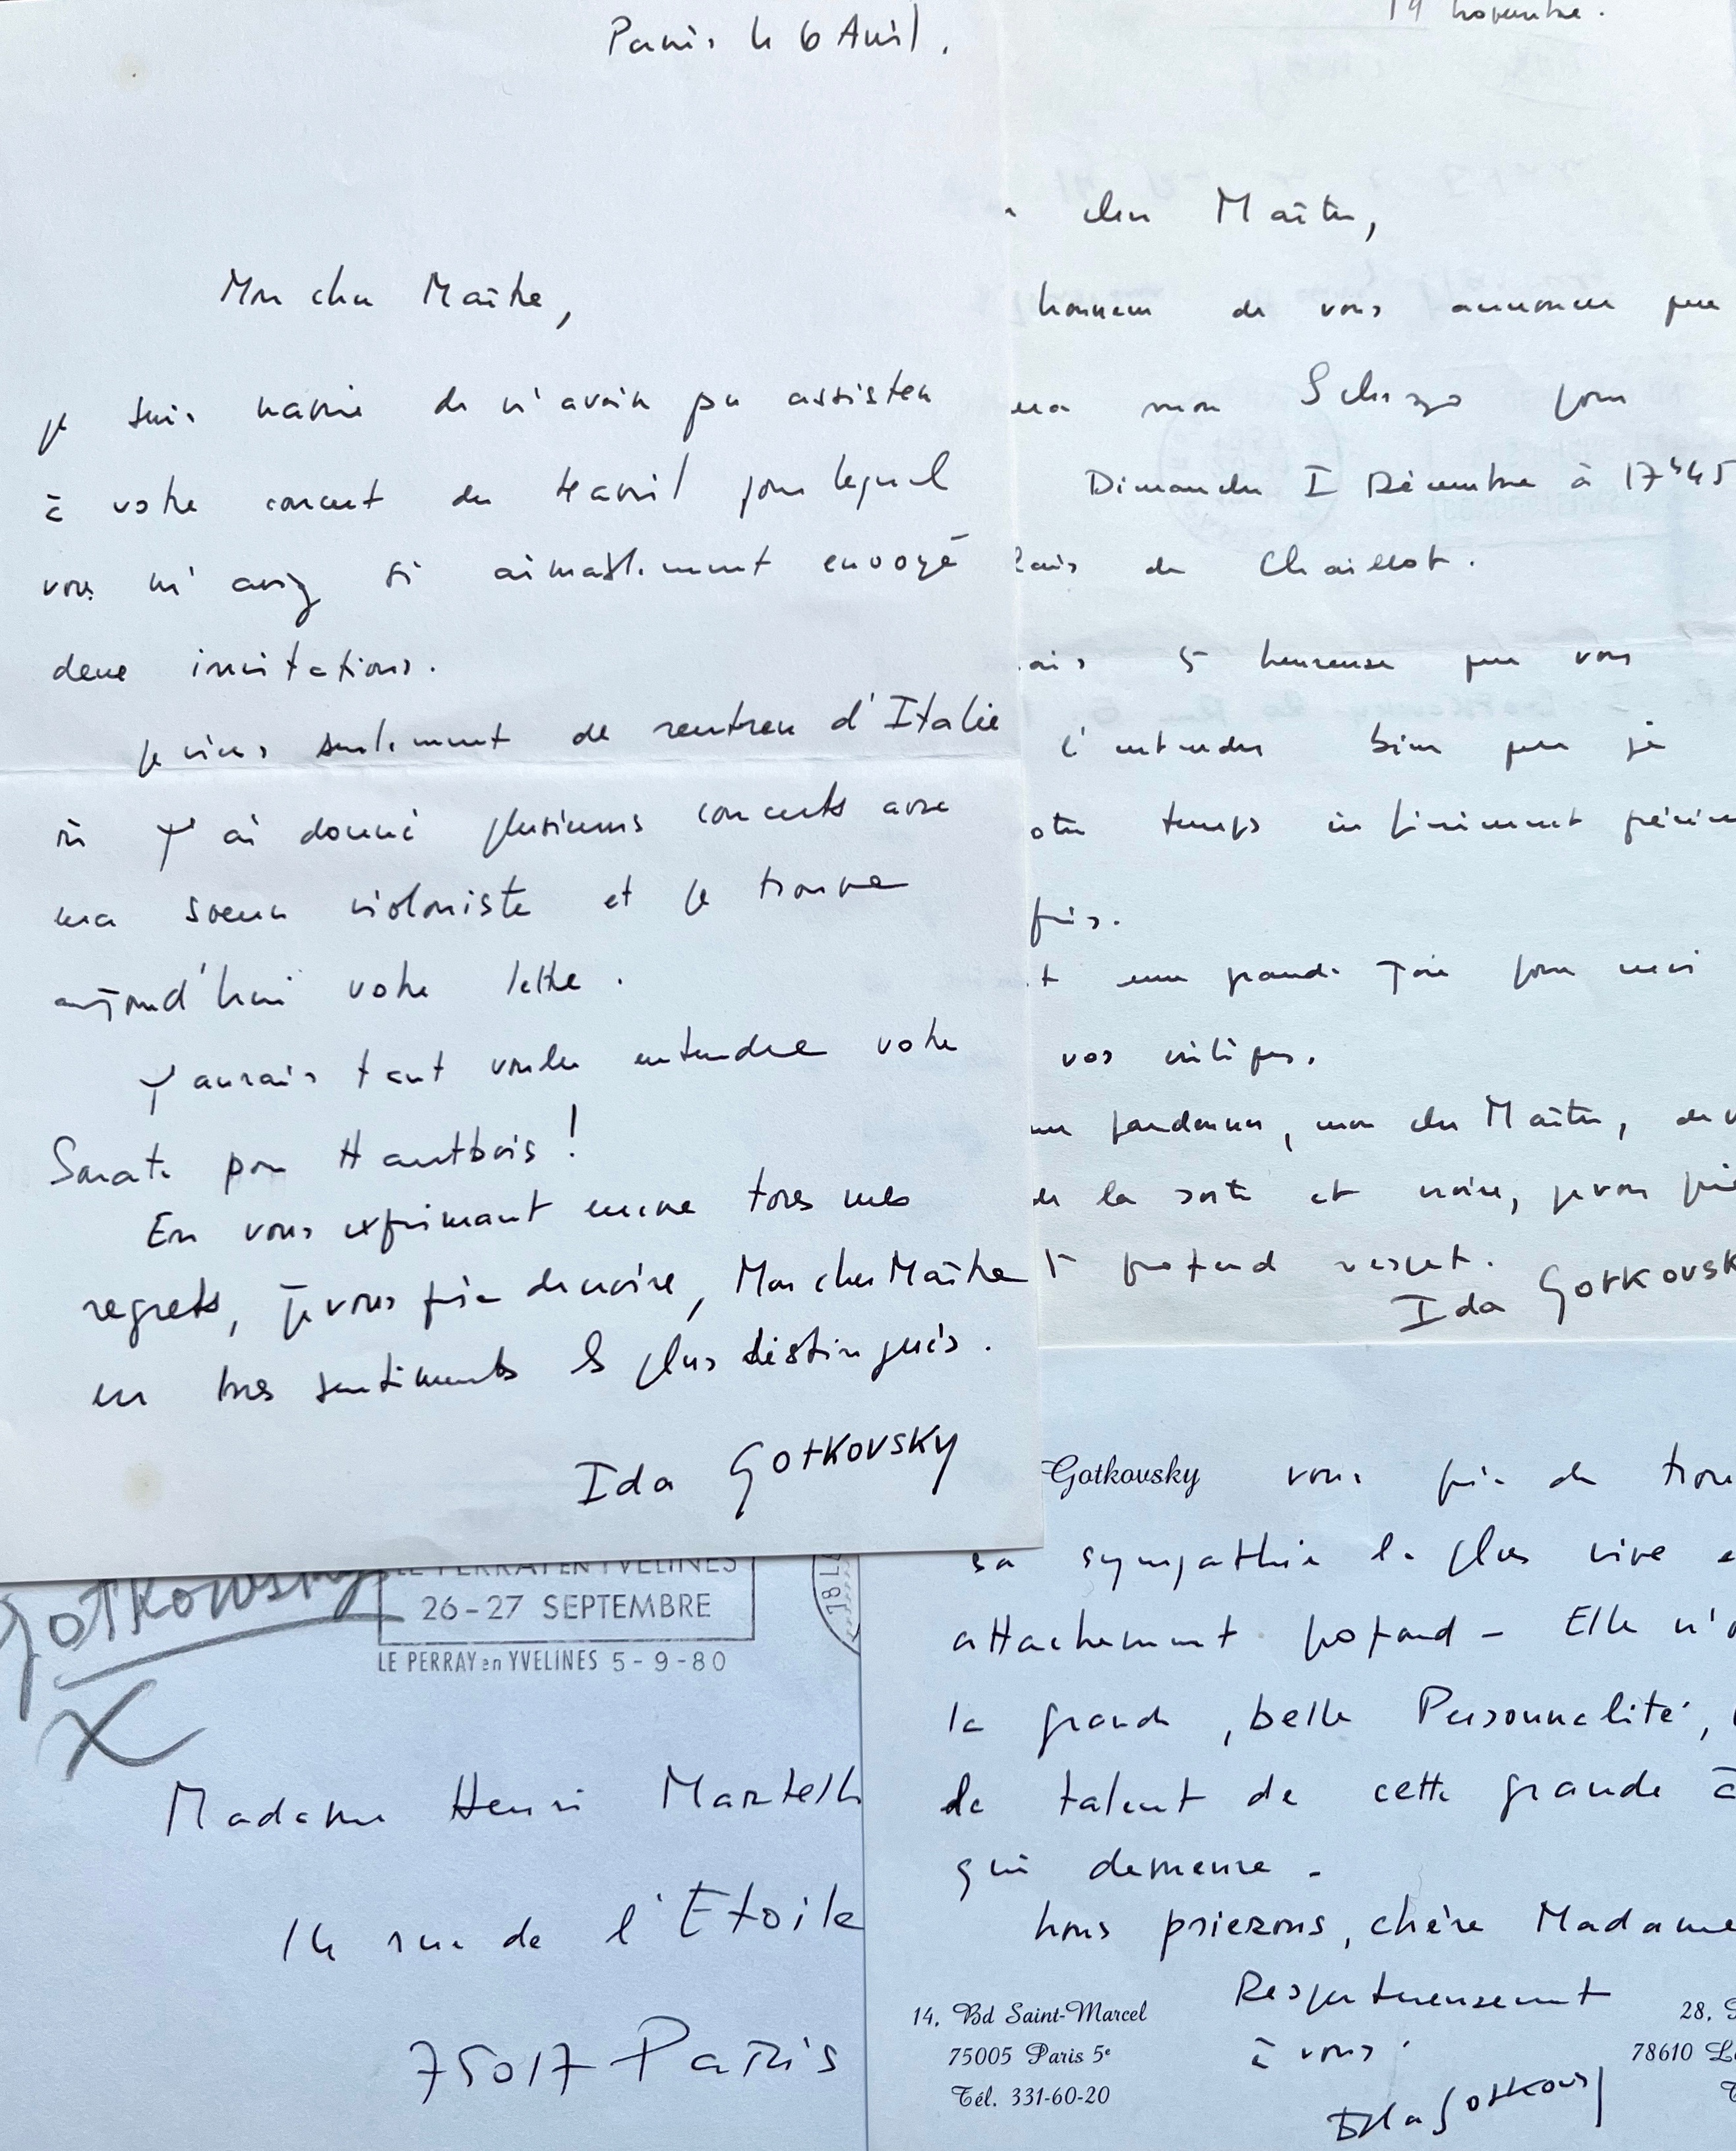 Paris le 6 Avril.
Mon cher Maître,
je suis navrée de n'avoir pu assister
à votre concert du 1er avril pour lequel
vous m'avez si aimablement envoyé
deux invitations.
Je viens seulement de rentrer d'Italie
où j'ai donné plusieurs concerts avec
ma soeur violoniste et je trouve
aujourd'hui votre lettre.
J'aurais tant voulu entendre votre
Sonate pour Hautbois !
En vous exprimant encore tous mes
regrets, je vous prie de croire, Mon cher Maître
en mes sentiments les plus distingués.
Ida Gotkovsky
19 novembre.
cher Maître,
honneur de vous annoncer que
mon Scherzo pour
Dimanche I Décembre à 17h45
de Chaillot.
si heureuse que vous
l'entendre bien que je
temps infiniment
une grande joie pour moi
vos critiques.
pardonner, mon cher Maître, de
de la sorte et croire, je vous
profond respect.
Ida Gotkovsk
Gotkovsky vous prie de
sa sympathie la plus vive
attachement profond - Elle n'
la grande, belle Personnalité,
de talent de cette grande
qui demeure -
nous prierons, chère Madame
Respectueusement
à vous.
Ida Gotkovsky
14, Bd Saint-Marcel
75005 Paris 5e
Tél. 331-60-20
28,
78610
Gotkowsky
X
LE PERRAY EN YVELINES
26-27 SEPTEMBRE
LE PERRAY en YVELINES 5-9-80
18
Madame Henri Martelli
14 rue de l'Etoile
75017 Paris